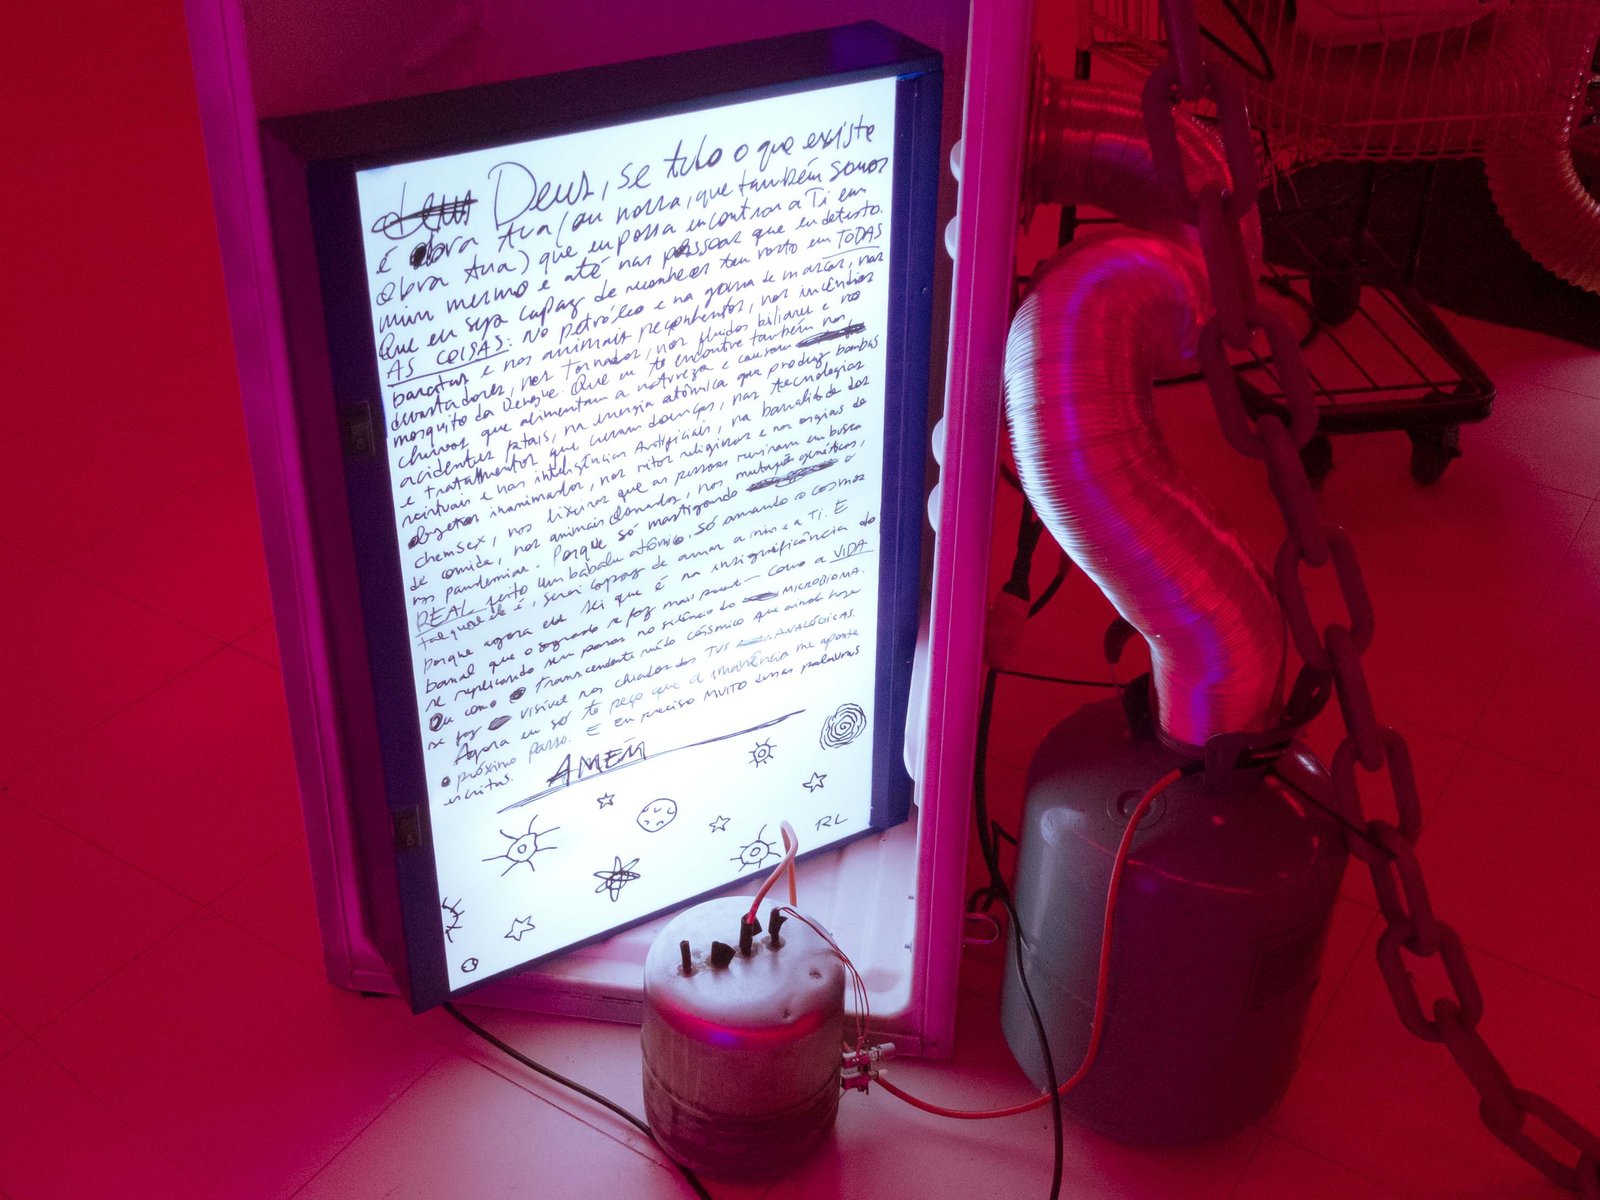 Deus, se tudo o que existe
é obra tua (ou nossa, que também somos
obra tua) que eu possa encontrar a Ti em
mim mesmo e até nas pessoas que eu detesto.
Que eu seja capaz de reconhecer teu rosto em TODAS
AS COISAS: no petróleo e na goma de mascar, nas
baratas e nos animais peçonhentos, nos incêndios
devastadores, nos tornados, nos fluidos biliares e no
mosquito da Dengue. Que eu te encontre também nas
chuvas que alimentam a natureza e causam
acidentes fatais, na energia atômica que produz bombas
e tratamentos que curam doenças, nas tecnologias
e nas inteligências Artificiais, na banalidade dos
objetos inanimados, nos ritos religiosos e nas orgias de
chemsex, nos lixeiros que as pessoas reviram em busca
de comida, nos animais clonados, nas mutações genéticas,
nas pandemias. Porque só mastigando o
REAL feito um babalu atômico, só amando o cosmos
tal qual ele é, serei capaz de amar a mim e a Ti. E
porque agora eu sei que é na insignificância do
banal que o sagrado se faz mais presente – como a VIDA
se replicando sem parar no silêncio do MICROBIOMA.
Ou como o transcendente ruído cósmico que ainda hoje
se faz visível nos chiados das TVS ANALÓGICAS.
Agora eu só te peço que a imanência me aponte
o próximo passo. E eu preciso MUITO dessas palavras
escritas.
AMÉM
RL